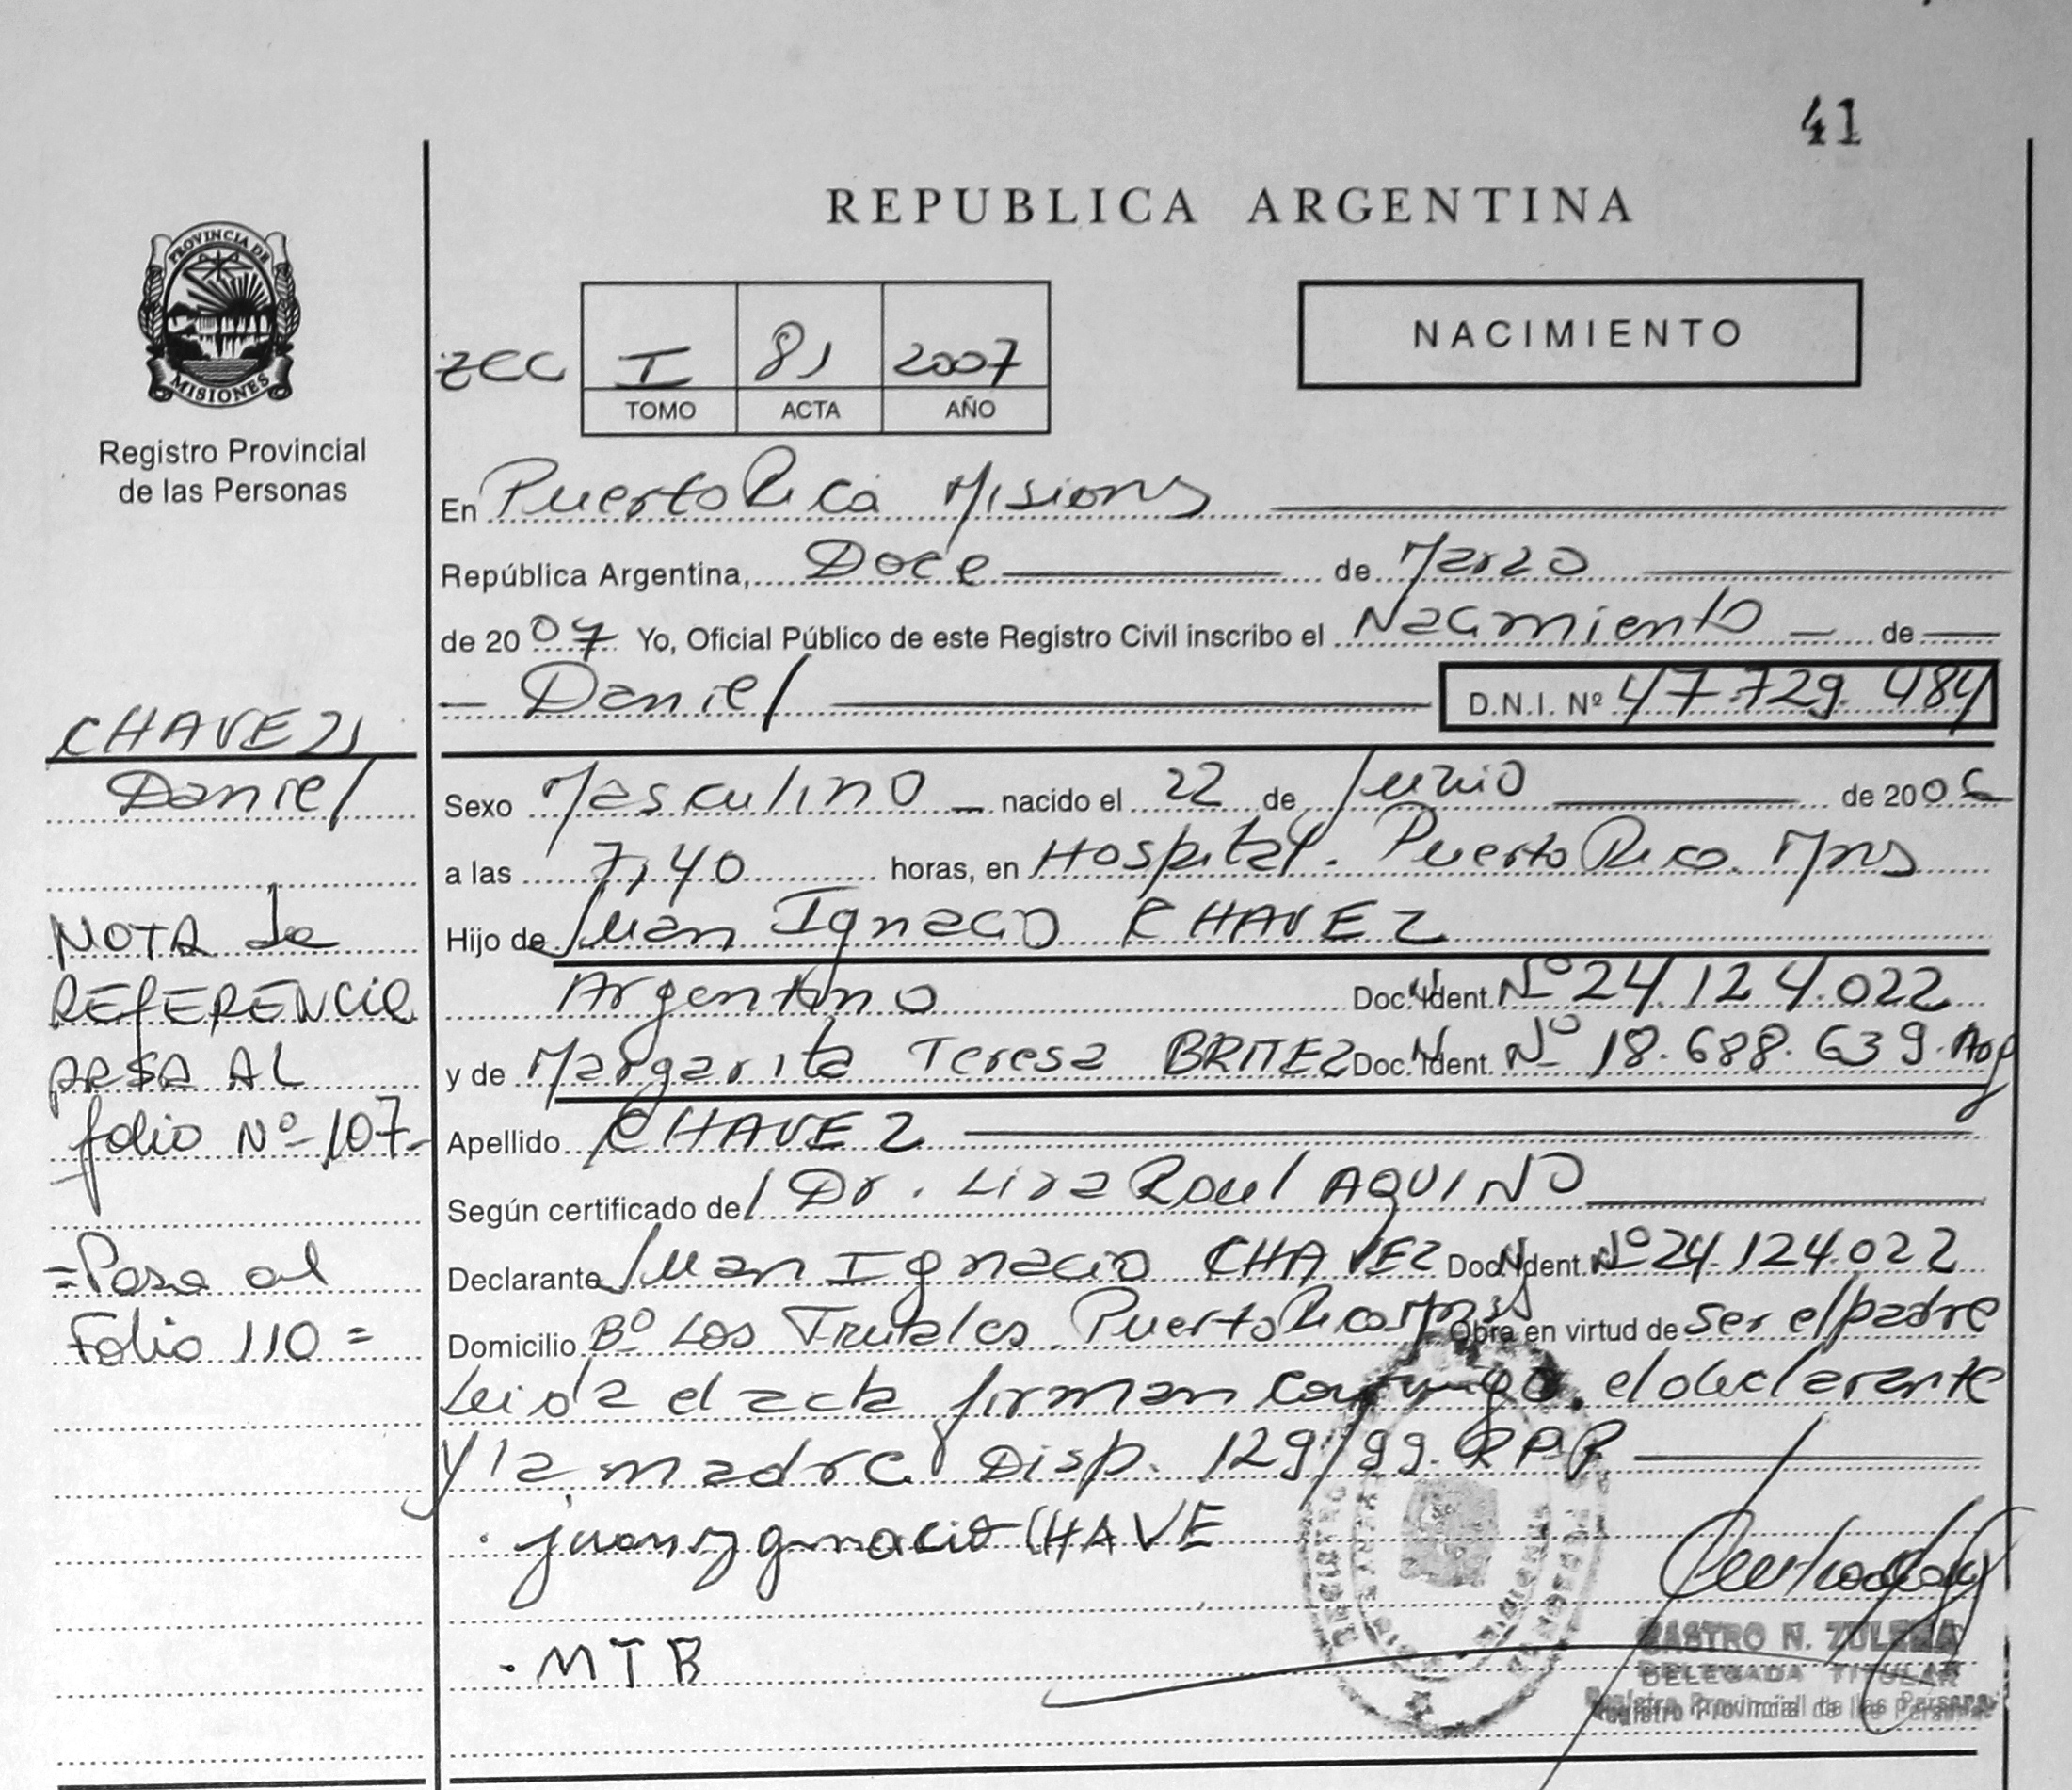 41
REPUBLICA ARGENTINA
PROVINCIA DE
MISIONES
Registro Provincial
de las Personas
zcc I 81 2007
TOMO ACTA AÑO
NACIMIENTO
En Puerto Rico Misiones
República Argentina, Doce de Marzo
de 2007 Yo, Oficial Público de este Registro Civil inscribo el Nacimiento de
Daniel D.N.I. Nº 47.729.484
CHAVEZ
Daniel
Sexo Masculino nacido el 22 de Junio de 2006
a las 7,40 horas, en Hospital. Puerto Rico. Mns
Hijo de Juan Ignacio CHAVEZ
Argentino Doc. Ident. Nº 24.124.022
y de Margarita Teresa BRITEZ Doc. Ident. Nº 18.688.639. Arg
Apellido CHAVEZ
Según certificado del Dr. Raul AQUINO
Declarante Juan Ignacio CHAVEZ Doc. Ident. Nº 24.124.022
Domicilio Bº Los Puerto Rico Mns Obra en virtud de ser el padre
Leida el acta firman conmigo el declarante
y la madre Disp. 129/99. RPP
juan ygnacio CHAVE
MTB
NOTA de
REFERENCIA
PASA AL
folio Nº 107-
= Pasa al
Folio 110 =
CASTRO N. ZULEMA
DELEGADA TITULAR
Registro Provincial de las Personas